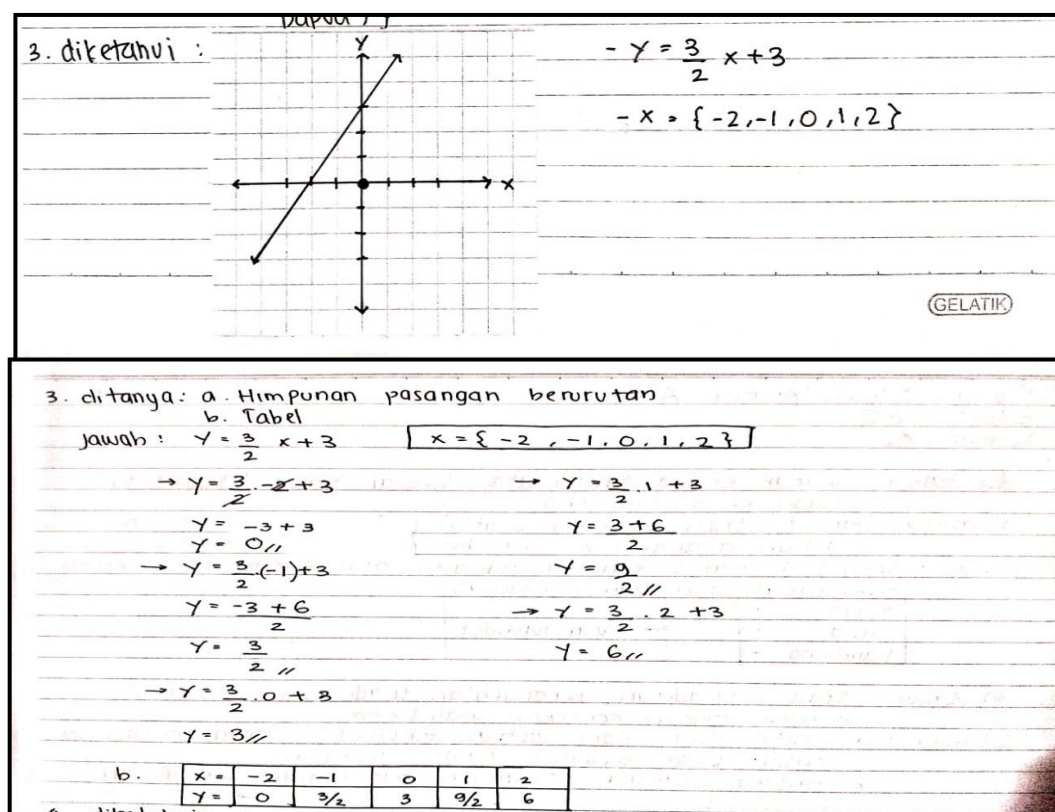 3. diketahui :
Y
X
- Y = 3/2 x + 3
- X = {-2,-1,0,1,2}
GELATIK
3. ditanya: a. Himpunan pasangan berurutan
b. Tabel
Jawab : Y = 3/2 x + 3
x = {-2, -1, 0, 1, 2}
→ Y = 3/2 . -2 + 3
Y = -3 + 3
Y = 0//
→ Y = 3/2 .(-1)+3
Y = -3 + 6/2
Y = 3/2 //
→ Y = 3/2 . 0 + 3
Y = 3//
→ Y = 3/2 . 1 + 3
Y = 3+6/2
Y = 9/2 //
→ Y = 3/2 . 2 + 3
Y = 6//
b.
x = -2 -1 0 1 2
Y = 0 3/2 3 9/2 6